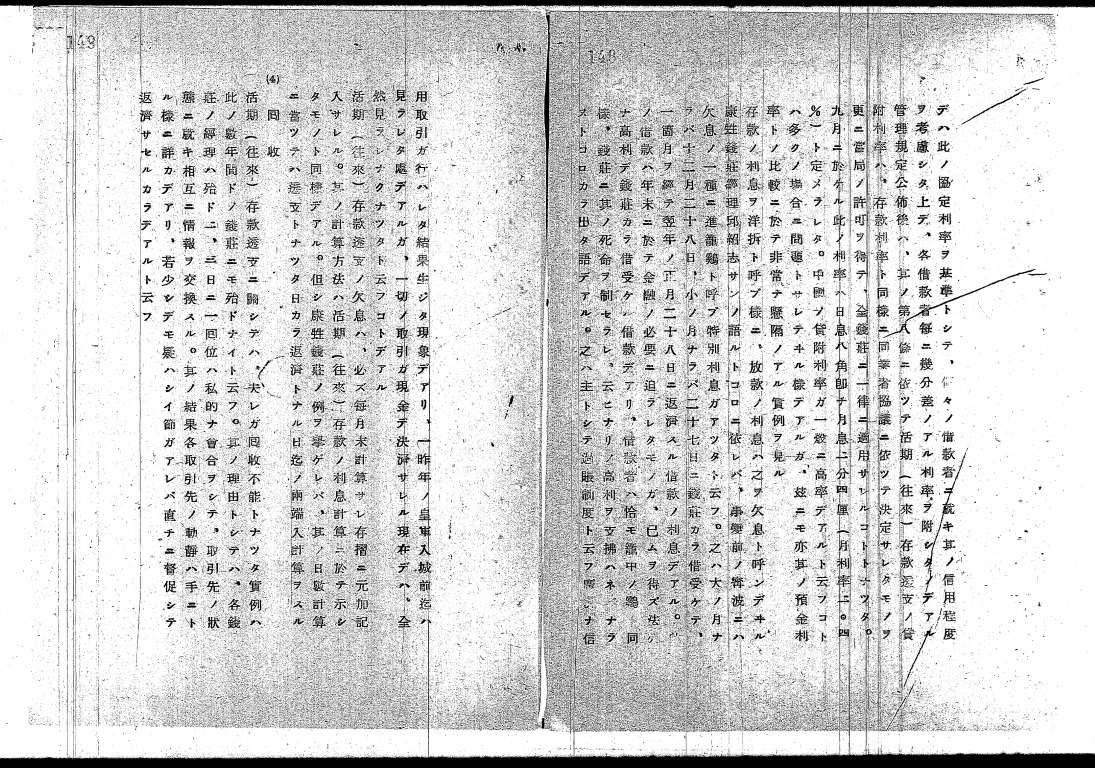 148
デハ此ノ協定利率ヲ基準トシテ、個々ノ借款者ニ就キ其ノ信用程度
ヲ考慮シタ上デ、各借款者毎ニ幾分差ノアル利率ヲ附シタノデアル
管理規定公佈後ハ、其ノ第八條ニ依ツテ活期（往來）存款透支ノ貸
附利率ハ、存款利率ト同樣ニ同業者協議ニ依ツテ決定サレタモノヲ
更ニ當局ノ許可ヲ得テ、全錢莊ニ一律ニ適用サレルコトトナツタ。
九月ニ於ケル此ノ利率ハ日息八角卽チ月息二分四厘（月利率二。四
％）ト定メラレタ。中國ノ貸附利率ガ一般ニ高率デアルト云フコト
ハ多クノ場合ニ問題トサレテヰル樣デアルガ、玆ニモ亦其ノ預金利
率トノ比較ニ於テ非常ナ懸隔ノアル實例ヲ見ル
存款ノ利息ヲ洋折ト呼ブ樣ニ、放款ノ利息ハ之ヲ欠息ト呼ンデヰル
康牲錢莊經理邱紹志サンノ語ルトコロニ依レバ、事變前ノ寧波ニハ
欠息ノ一種ニ進籠鷄ト呼ブ特別利息ガアツタト云フ。之ハ大ノ月ナ
ラバ十二月二十八日、小ノ月ナラバ二十七日ニ錢莊カラ借受ケテ、
一箇月ヲ經テ翌年ノ正月二十八日ニ返濟スル信款ノ利息デアル。
ノ信款ハ年末ニ於テ金融ノ必要ニ迫ラレタモノガ、已ムヲ得ズ
ナ高利デ錢莊カラ借受ケル借款デアリ、借款者ハ恰モ籠中ノ鷄ト同
樣、錢莊ニ其ノ死命ヲ制セラレ、云ヒナリノ高利ヲ支拂ハネバナラ
ヌトコロカラ出タ語デアル。之ハ主トシテ過賬制度ト云フ ナ信
149
用取引ガ行ハレタ結果生ジタ現象デアリ、一昨年ノ皇軍入城前迄ハ
見ラレタ處デアルガ、一切ノ取引ガ現金デ決濟サレル現在デハ、全
然見ラレナクナツタト云フコトデアル
活期（往來）存款透支ノ欠息ハ、必ズ每月末計算サレ存摺ニ元加記
入サレル。其ノ計算方法ハ活期（往來）存款ノ利息計算ニ於テ示シ
タモノト同樣デアル。但シ康牲錢莊ノ例ヲ擧ゲレバ、其ノ日數計算
ニ當ツテハ透支トナツタ日カラ返濟トナル日迄ノ兩端入計算ヲスル
(4) 囘收
活期（往來）存款透支ニ關シテハ、夫レガ囘收不能トナツタ實例ハ
此ノ數年間ドノ錢莊ニモ殆ドナイト云フ。其ノ理由トシテハ、各錢
莊ノ經理ハ殆ド二、三日ニ一囘位ハ私的ナ會合ヲシテ、取引先ノ狀
態ニ就キ相互ニ情報ヲ交換スル。其ノ結果各取引先ノ動靜ハ手ニト
ル樣ニ詳カデアリ、若少シデモ疑ハシイ節ガアレバ直チニ督促シテ
返濟サセルカラデアルト云フ